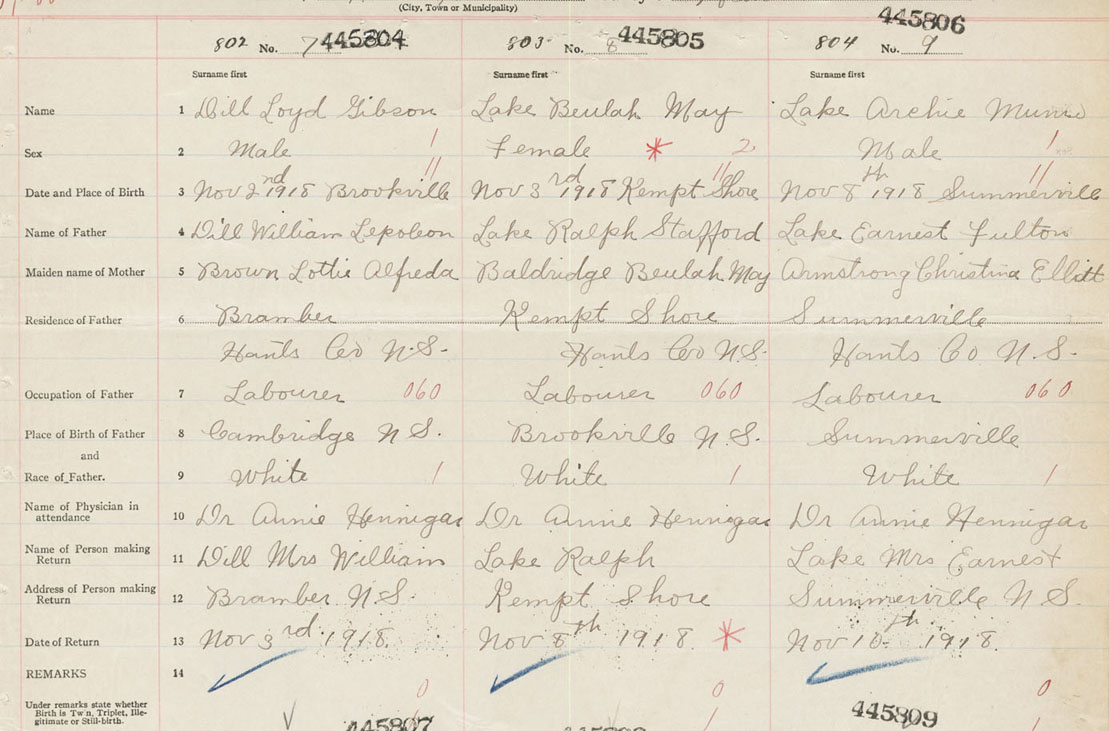 (City, Town or Municipality)
802 No. 7 445804 803 No. 8 445805 804 No. 9 445806
Surname first Surname first Surname first
Name 1 Dill Loyd Gibson Lake Beulah May Lake Archie
Sex 2 Male 1 Female * 2 Male 1
11 11 11
Date and Place of Birth 3 Nov 2nd 1918 Brookville Nov 3rd 1918 Kempt Shore Nov 8th 1918 Summerville
Name of Father 4 Dill William Lepoleon Lake Ralph Stafford Lake Earnest Fulton
Maiden name of Mother 5 Brown Lottie Alfreda Baldridge Beulah May Armstrong Christina
Residence of Father 6 Bramber Kempt Shore Summerville
Hants Co N.S. Hants Co N.S. Hants Co N.S.
Occupation of Father 7 Labourer 060 Labourer 060 Labourer 060
Place of Birth of Father 8 Cambridge N S. Brookville N.S. Summerville
and
Race of Father. 9 White 1 White 1 White 1
Name of Physician in attendance 10 Dr Annie Hennigar Dr Annie Hennigar Dr Annie Hennigar
Name of Person making Return 11 Dill Mrs William Lake Ralph Lake Mrs Earnest
Address of Person making Return 12 Bramber N.S. Kempt Shore Summerville N S.
Date of Return 13 Nov 3rd 1918. Nov 8th 1918. * Nov 10th 1918.
REMARKS 14
0 0 0
Under remarks state whether
Birth is Twin, Triplet, Ille-
gitimate or Still-birth.
445807 445809